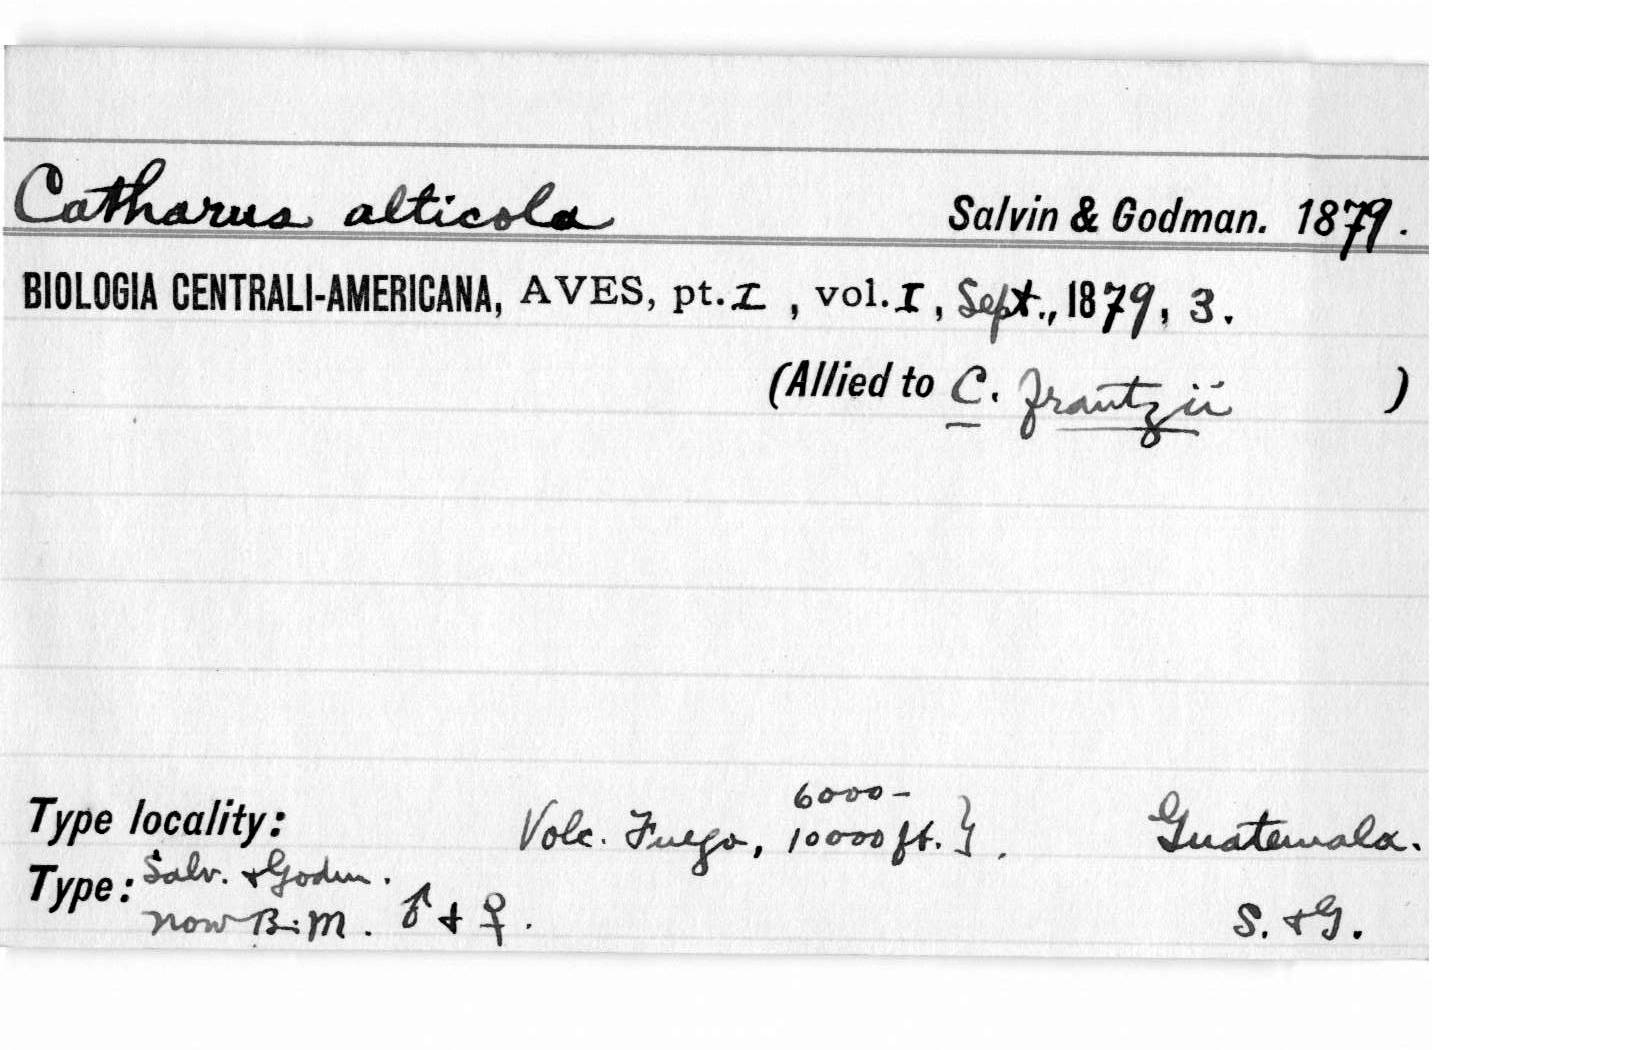 Catharus alticola Salvin & Godman. 1879.
BIOLOGIA CENTRALI-AMERICANA, AVES, pt. I , vol. I , Sept., 1879, 3.
(Allied to C. frantzii )
6000-
Type locality: Volc. Fuego, 10000 ft. } . Guatemala.
Type: Salv. + Godm.
now B.M. ♂ + ♀ . S. + G.